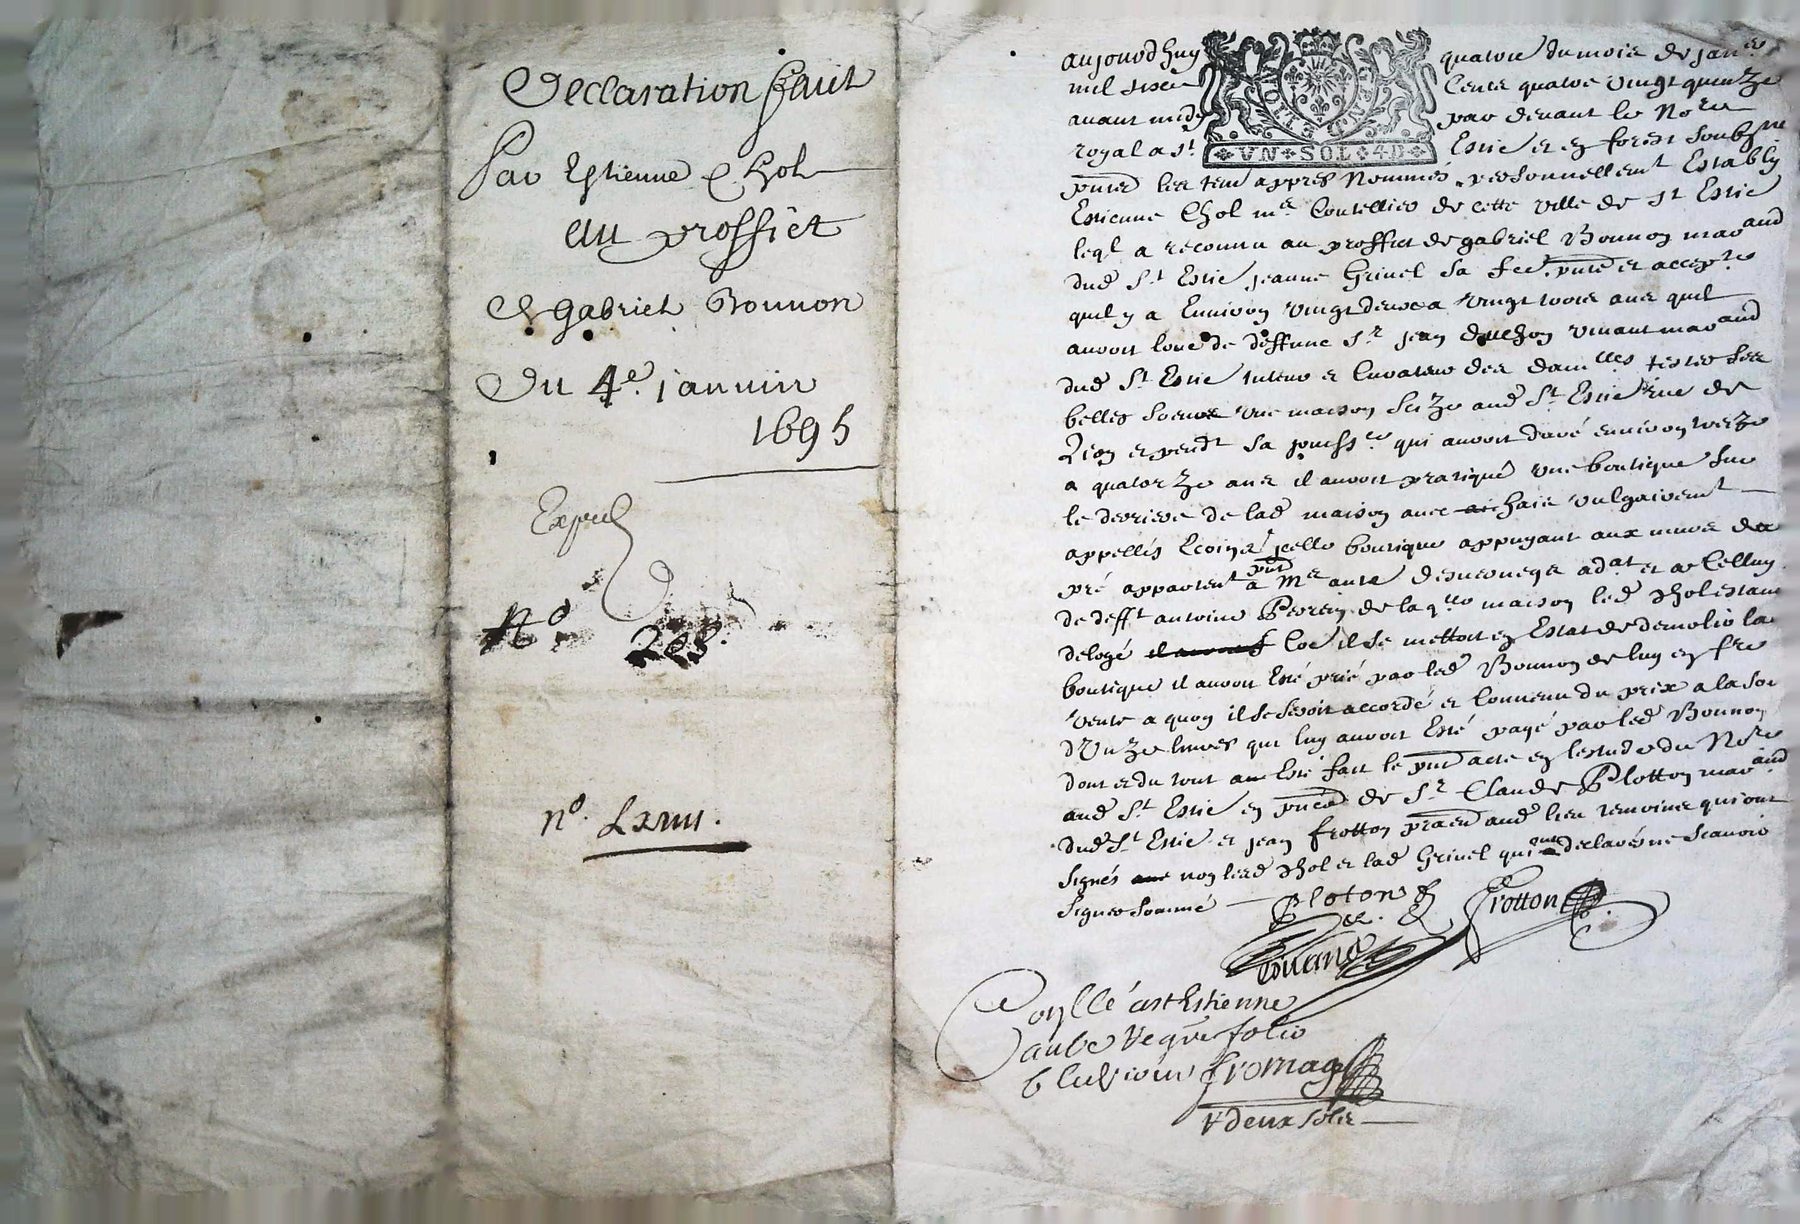 Declaration faict
Par Estienne Chol
au proffict
de gabriel Bonnon
Du 4e. januin
1695
Exped
No. 
no. Lxxiii.
aujourdhuy quatrie du mois de janer
mil sixce Cents quatre vingt quinze
avant midy par devant le Nore
royal a St. Estie et en forest soubsne
UN SOL 4D
GEN DE LION
pnts les tem appres Nommés, personnellemt Estably
Estienne Chol me Coutellier de cette ville de st Estie
leql a reconnu au proffict de gabriel Bonnon marand
dud St Estie jeanne Grivel sa fe pnte et accepte
quil y a Environ vingt deux a vingt trois ans quil
avoit loué de deffunc Sr jean duchon vivant marand
dud St Estie tuteur et Curateur des damlles ses
belles soeurs une maison size aud St Estie rue de
Lion et pendt sa jouisse qui avoit duré environ treize
a quatorze ans il avoit pratiqué une boutique sur
le derriere de lad maison avec haix vulgairemt
appellés Ecoins, jcelle boutique appuyant aux murs du
pré appartent pnt a Me adat et a Celluy
de defft antoine Perrein, de laqlle maison led Chol estant
delogé il avoit Coe il se mettoit en Estat de demolir la
boutique il avoit Esté prié par led Bonnon de luy en fre
vente a quoy il se seroit accordé et Convenu du prix a la soe
d'Unze livres qui luy avoit Esté payé par led Bonnon
dont et du tout a Esté fait le pnt acte en lestude du Nore
aud St Estie en pnce de Sr Claude Plotton marand
dud St Estie et jean frotton praen aud lieu temoins qui ont
signés non led Chol et lad Grivel qui ont declarés ne scavoir
signer sommé
Ploton
frotton
Conllé a st Estienne
folio
fromage
r deux sols